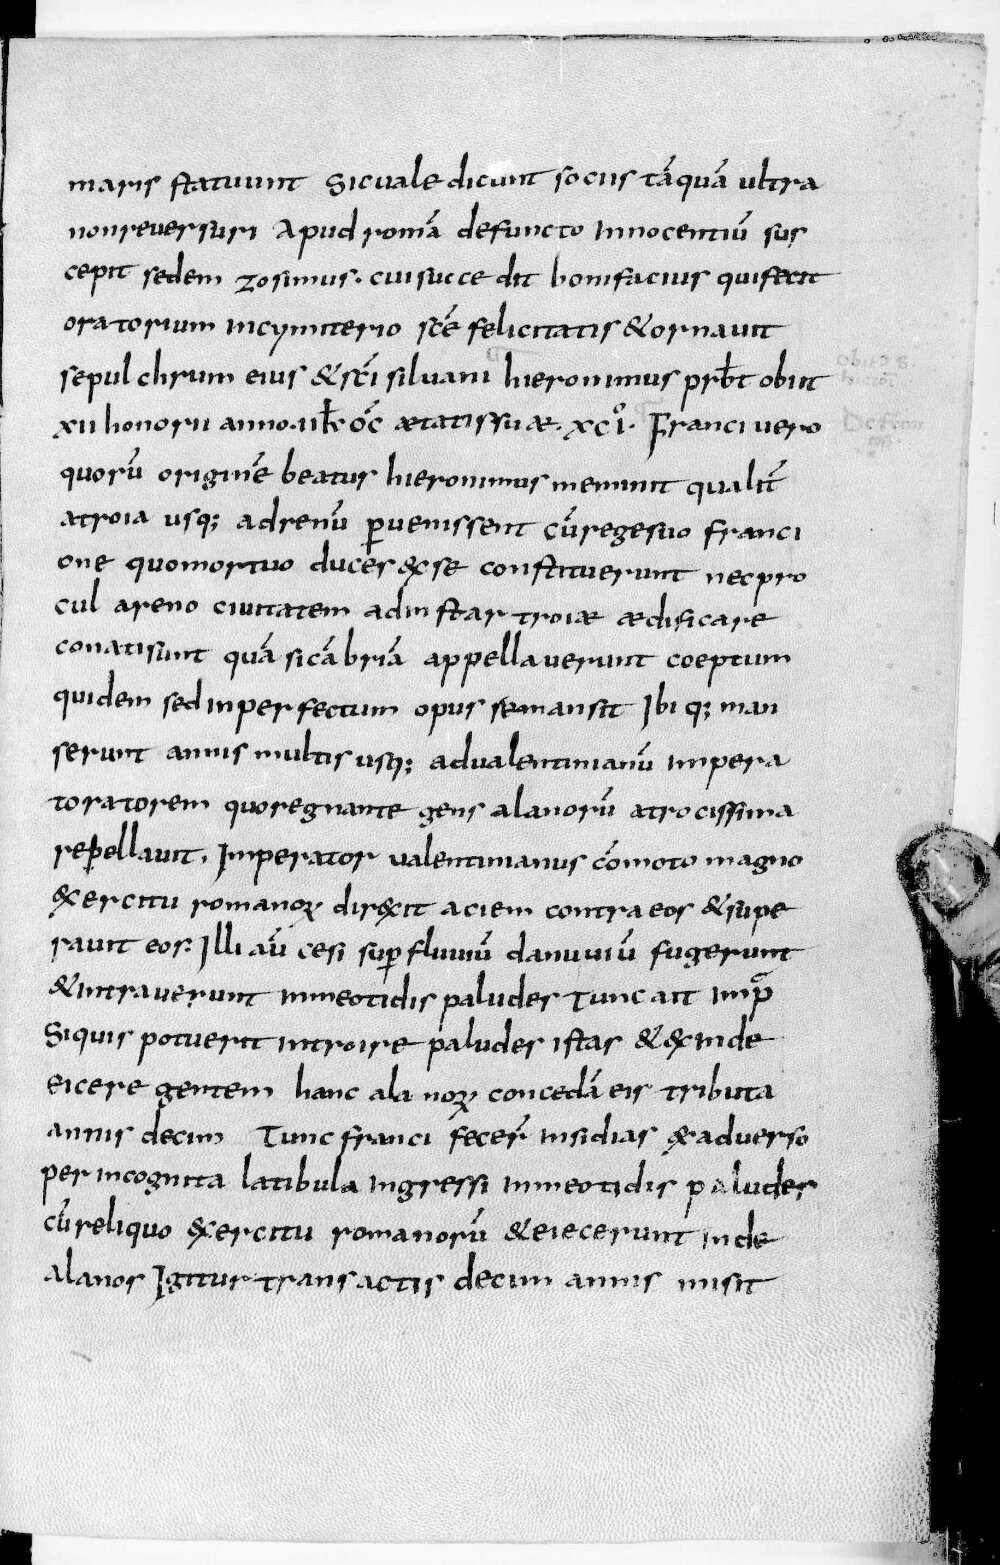 maris statuunt Sicuale dicunt sociis tāquā ultra
nonreuersuri Apud romā defuncto Innocentiū sus
cepit sedem zosimus. cuisuccedit bonifacius quifecit
oratorium incymiterio scē felicitatis &ornauit
sepulchrum eius &scī siluani hieronimus prb̄t obiit
xii honorii anno. iik̄ oc̄ ætatissuæ. xci̊. Franci uero
quorū originē beatus hieronimus meminit qualit̄
atroia usq; adrenū ꝑuenissent cūregesuo franci
one quomortuo duces &xse constituerunt necpro
cul areno ciuitatem adinstar troiæ ædificare
conatisunt quā sicābriā appellauerunt coeptum
quidem sedinperfectum opus remansit Ibi q; man
serunt annis multis usq; adualentinianū impera
toratorem quoregnante gens alanorū atrocissima
reꝑellauit. Imperator ualentinianus cōmoto magno
&xercitu romanoꝝ dir&xit aciem contraeos &supe
rauit eos. Illi aū cesi suꝑ fluuiū danuuiū fugerunt
&intrauerunt inmeotidis paludes Tunc ait imp̄
Siquis potuerit introire paludes istas &&xinde
eicere gentem hanc alanoꝝ concedā eis tributa
annis decim Tunc franci fecer̄ insidias &xaduerso
per incognita latibula ingressi inmeotidis paludes
cūreliquo &xercitu romanorū &eiecerunt inde
alanos Igitur transactis decim annis misit